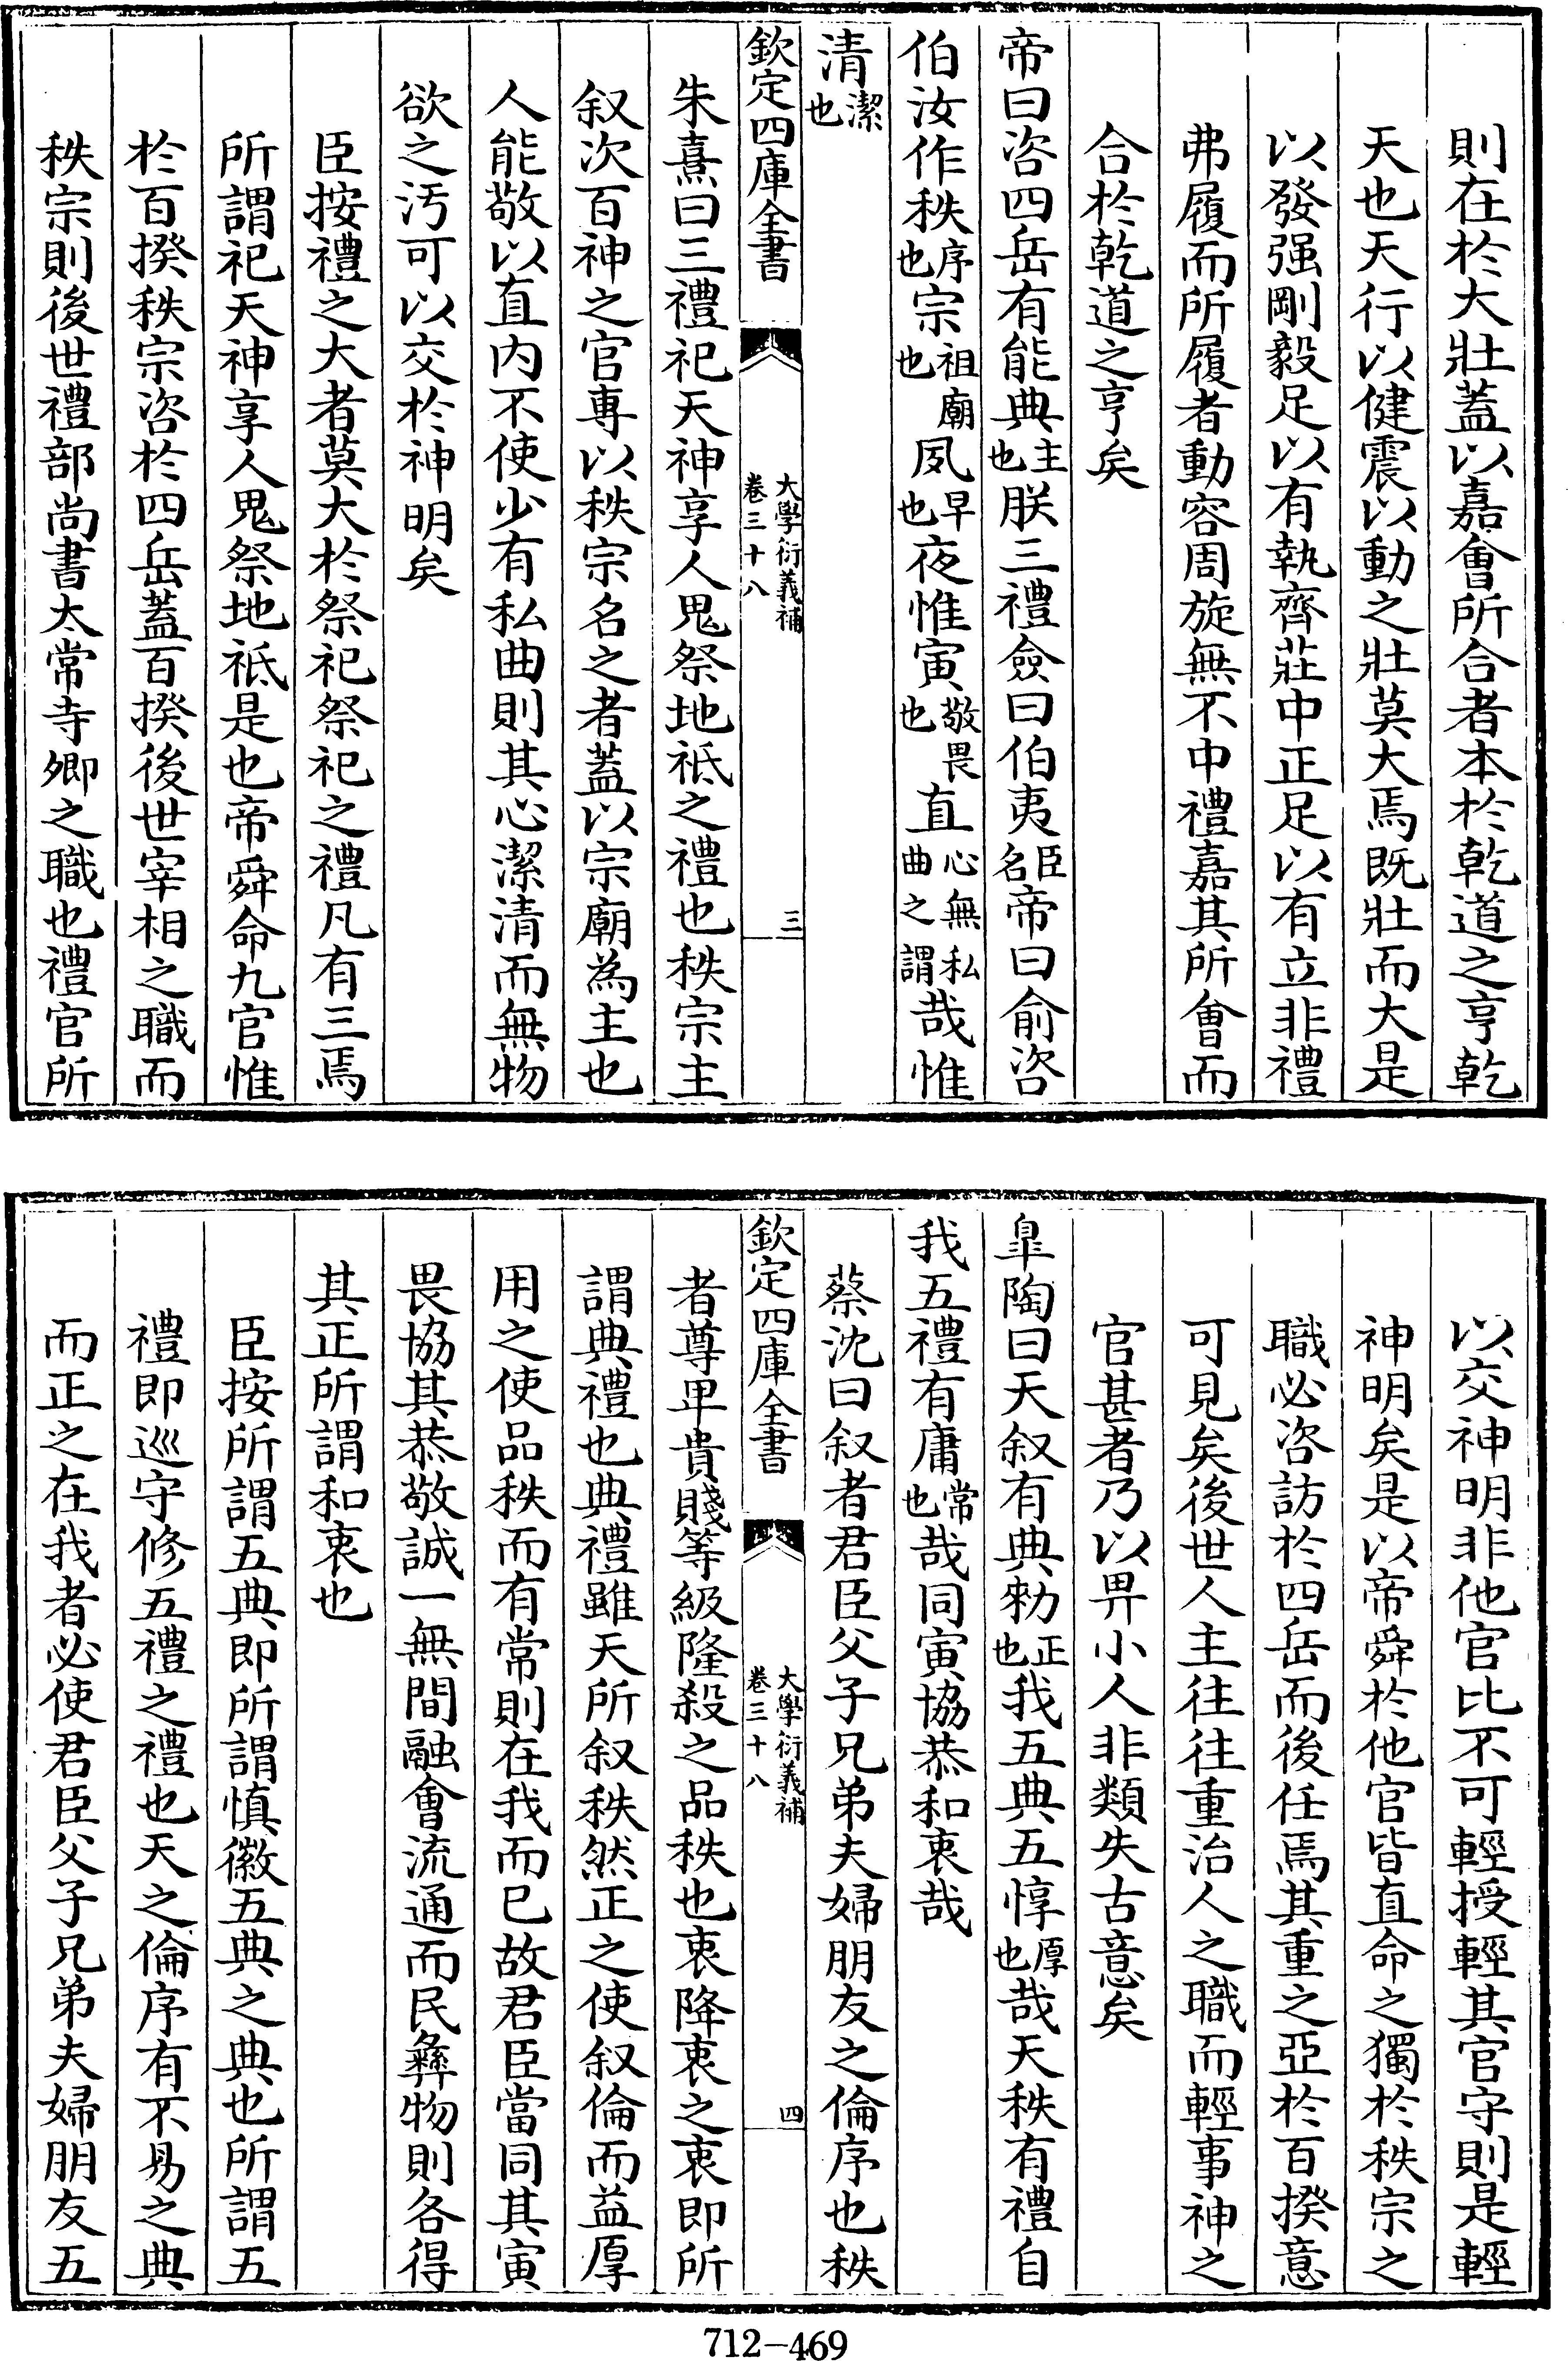 則在於大壯蓋以嘉會所合者本於乾道之亨乾
天也天行以健震以動之壯莫大焉既壯而大是
以發强剛毅足以有執齊莊中正足以有立非禮
弗履而所履者動容周旋無不中禮嘉其所會而
合於乾道之亨矣
帝曰咨四岳有能典主也朕三禮僉曰伯夷臣名帝曰俞咨
伯汝作秩序也宗祖廟也夙早也夜惟寅敬畏也直心無私曲之謂哉惟
清潔也
欽定四庫全書 大學衍義補 卷三十八 三
朱熹曰三禮祀天神享人鬼祭地祗之禮也秩宗主
叙次百神之官專以秩宗名之者蓋以宗廟為主也
人能敬以直内不使少有私曲則其心潔清而無物
欲之汚可以交於神明矣
臣按禮之大者莫大於祭祀祭祀之禮凡有三焉
所謂祀天神享人鬼祭地祗是也帝舜命九官惟
於百揆秩宗咨於四岳蓋百揆後世宰相之職而
秩宗則後世禮部尚書太常寺卿之職也禮官所
以交神明非他官比不可輕授輕其官守則是輕
神明矣是以帝舜於他官皆直命之獨於秩宗之
職必咨訪於四岳而後任焉其重之亞於百揆意
可見矣後世人主往往重治人之職而輕事神之
官甚者乃以畀小人非類失古意矣
臯陶曰天叙有典勑正也我五典五惇厚也哉天秩有禮自
我五禮有庸常也哉同寅協恭和衷哉
蔡沈曰叙者君臣父子兄弟夫婦朋友之倫序也秩
欽定四庫全書 大學衍義補 卷三十八 四
者尊卑貴賤等級隆殺之品秩也衷降衷之衷即所
謂典禮也典禮雖天所叙秩然正之使叙倫而益厚
用之使品秩而有常則在我而已故君臣當同其寅
畏協其恭敬誠一無間融會流通而民彝物則各得
其正所謂和衷也
臣按所謂五典即所謂慎徽五典之典也所謂五
禮即巡守修五禮之禮也天之倫序有不易之典
而正之在我者必使君臣父子兄弟夫婦朋友五
712-469